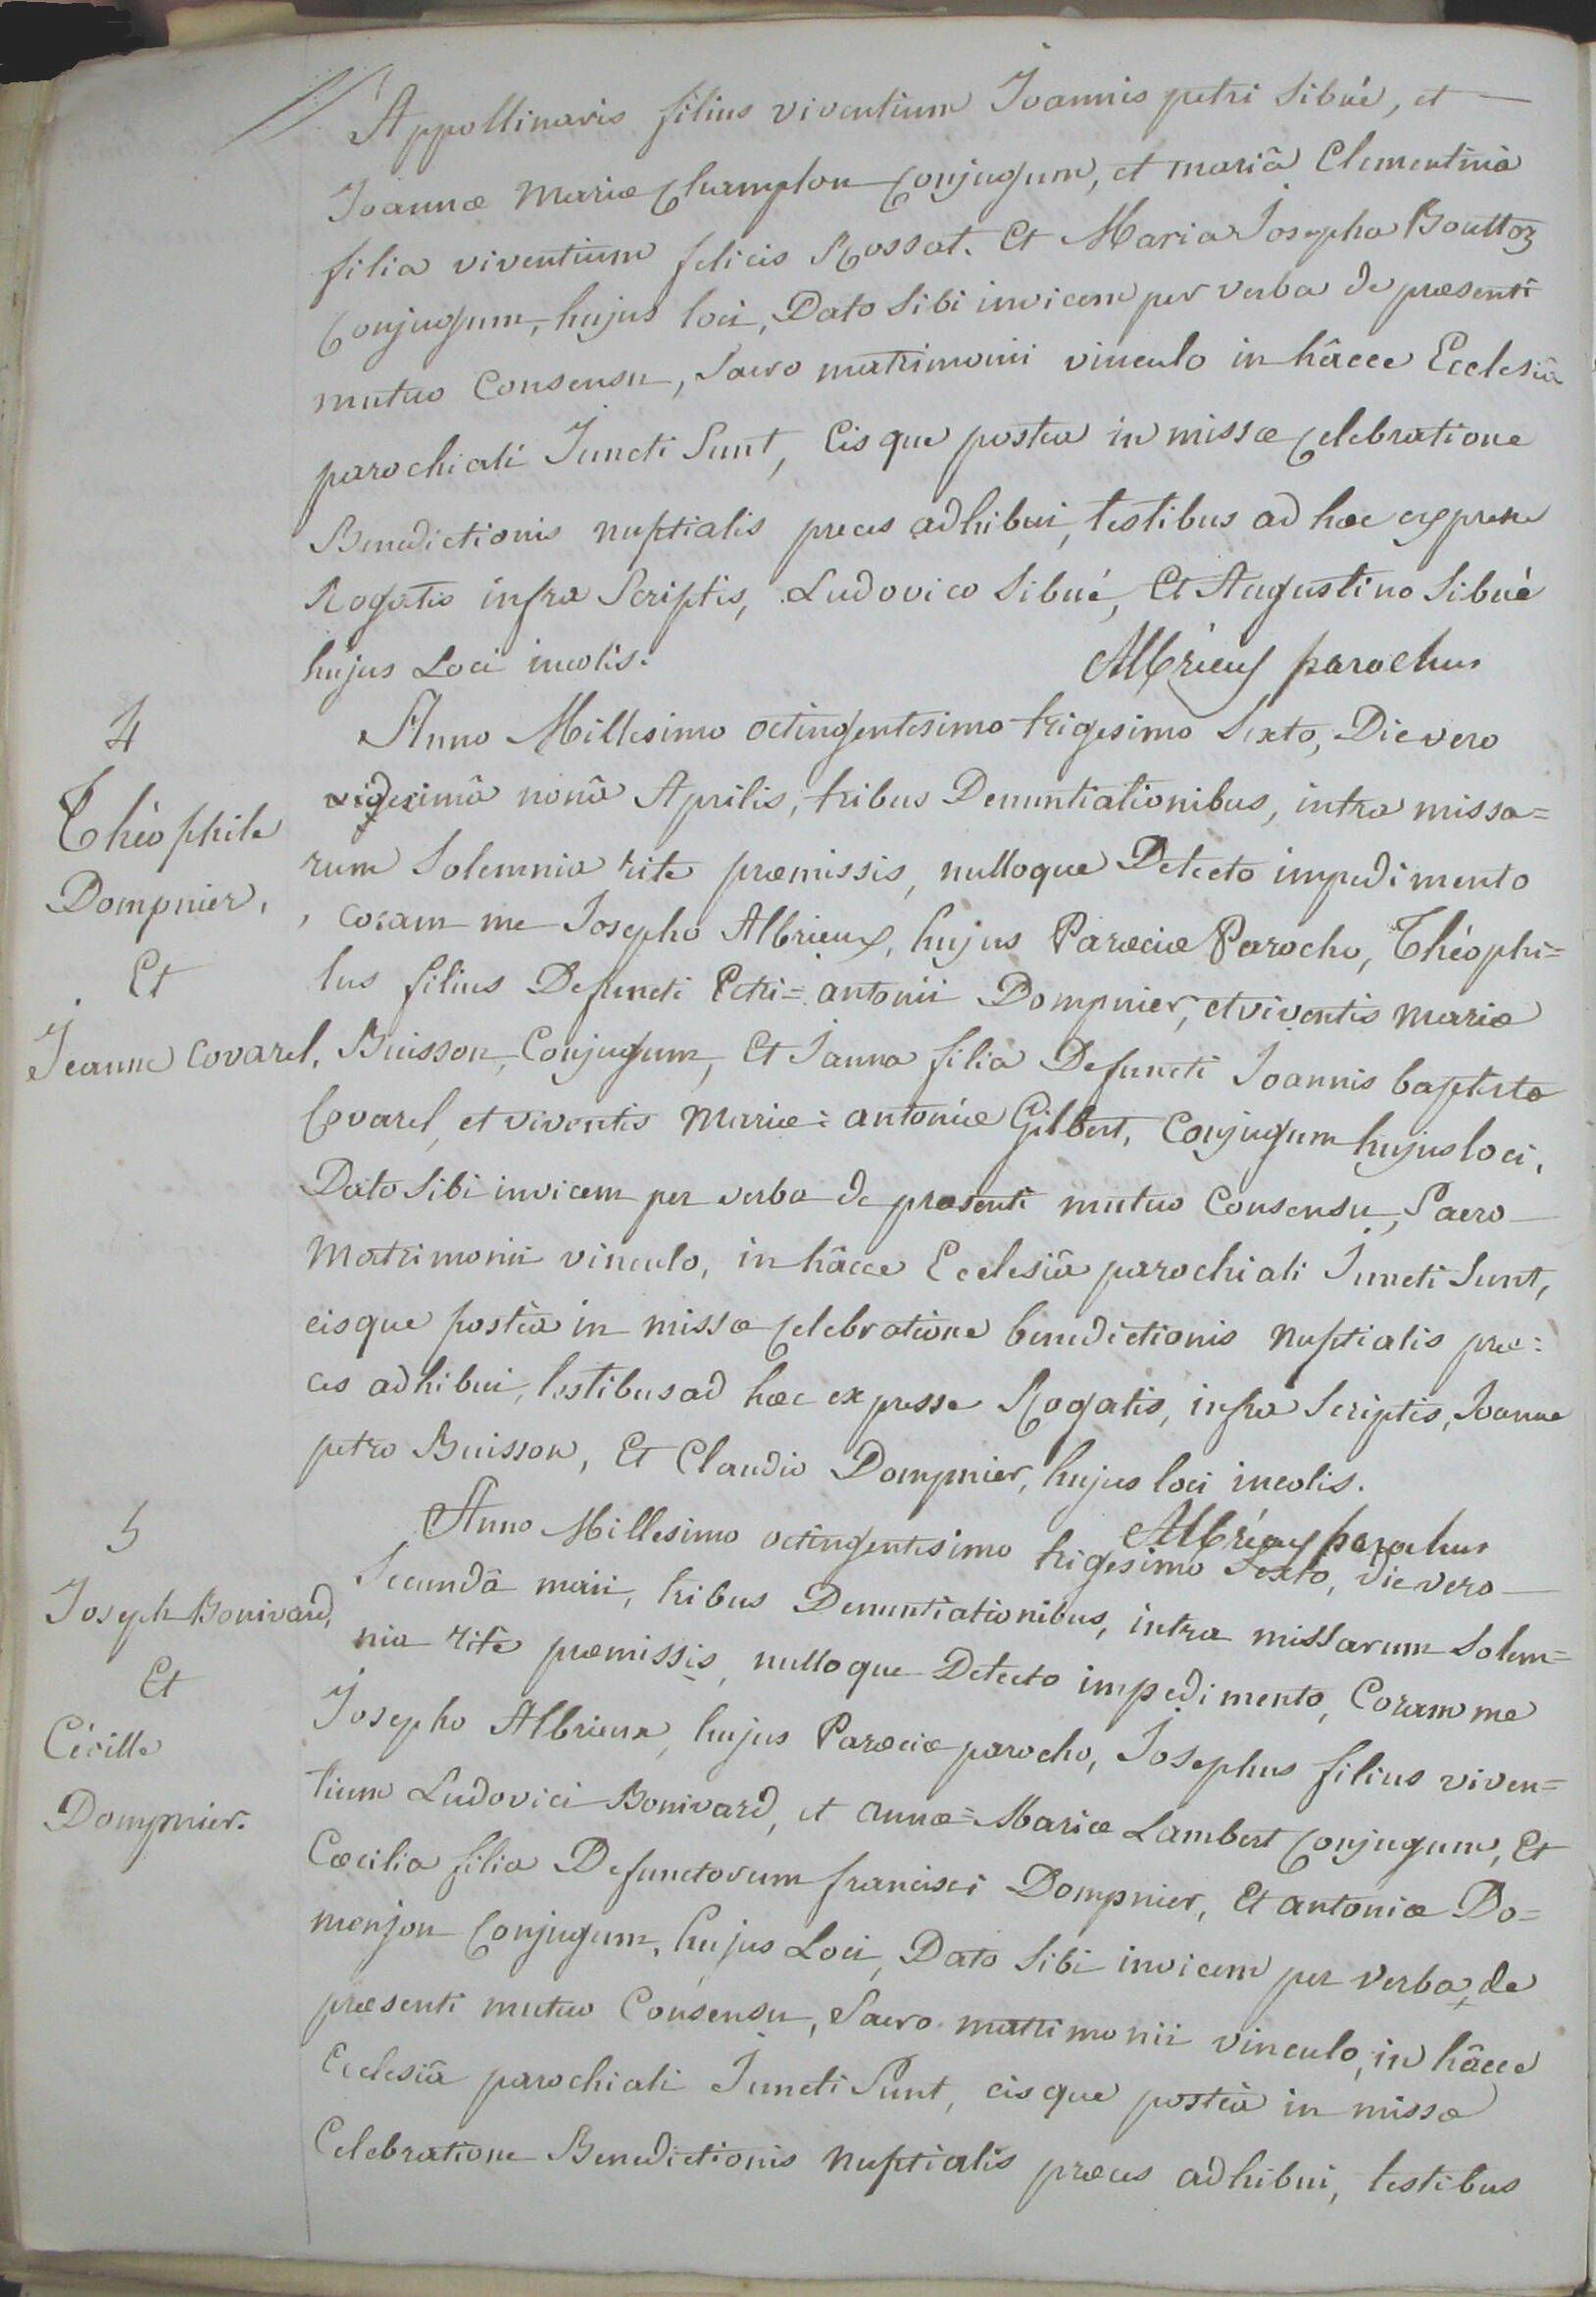 Appollinaris filius viventium Joannis petri Sibué, et
Joannæ Mariæ Champlon Conjugum, et mariâ Clementinâ
filia viventium felicis Rossat. Et Maria Josepha Bouttoz
Conjugum, hujus loci, Dato Sibi invicem per verba de præsenti
mutuo Consensu, Sacro matrimonii vinculo in hâcce Ecclesiâ
parochiali Juncti Sunt, Eisque postea in missæ Celebratione
Benedictionis nuptialis preces adhibui, testibus ad hoc expresse
Rogatis infra Scriptis, Ludovico Sibué, Et Augustino Sibué
hujus Loci incolis.
Albrieux parochus
4
Théophile
Dompnier,
Et
Jeanne Covarel,
Anno Millesimo octingentesimo trigesimo Sexto, Die vero
vigesimâ nonâ Aprilis, tribus Denuntiationibus, intra missa=
rum Solemnia rite præmissis, nulloque Detecto impedimento
, coram me Josepho Albrieux, hujus Paræciæ Parocho, Théophi=
lus filius Defuncti Petri=antonii Dompnier, et viventis mariæ
Buisson, Conjugum, Et Janna filia Defuncti Joannis baptistæ
Covarel, et viventis Mariæ=antoniæ Gilbert, Conjugum hujus loci,
Dato Sibi invicem per verba de præsenti mutuo Consensu, Sacro
Matrimonii vinculo, in hâcce Ecclesiâ parochiali Juncti Sunt,
eisque posteà in missæ Celebratione benedictionis nuptialis pre=
ces adhibui, testibus ad hoc expresse Rogatis, infra Scriptis, Joanne
petro Buisson, Et Claudio Dompnier, hujus loci incolis.
Albrieux parochus
5
Joseph Bonivard,
Et
Cécille
Dompnier.
Anno Millesimo octingentesimo trigesimo Sexto, die vero
Secundâ maii, tribus Denuntiationibus, intra missarum Solem=
nia ritè præmissis, nulloque Detecto impedimento, Coram me
Josepho Albrieux, hujus Paræciæ parocho, Josephus filius viven=
tium Ludovici Bonivard, et annæ=Mariæ Lambert Conjugum, Et
Cœcilia filia Defunctorum francisci Dompnier, Et antoniæ Do=
menjon Conjugum, hujus Loci, Dato Sibi invicem per verba, de
præsenti mutuo Consensu, Sacro matrimonii vinculo, in hâcce
Ecclesiâ parochiali Juncti Sunt, eisque posteà in missæ
Celebratione Benedictionis nuptialis preces adhibui, testibus